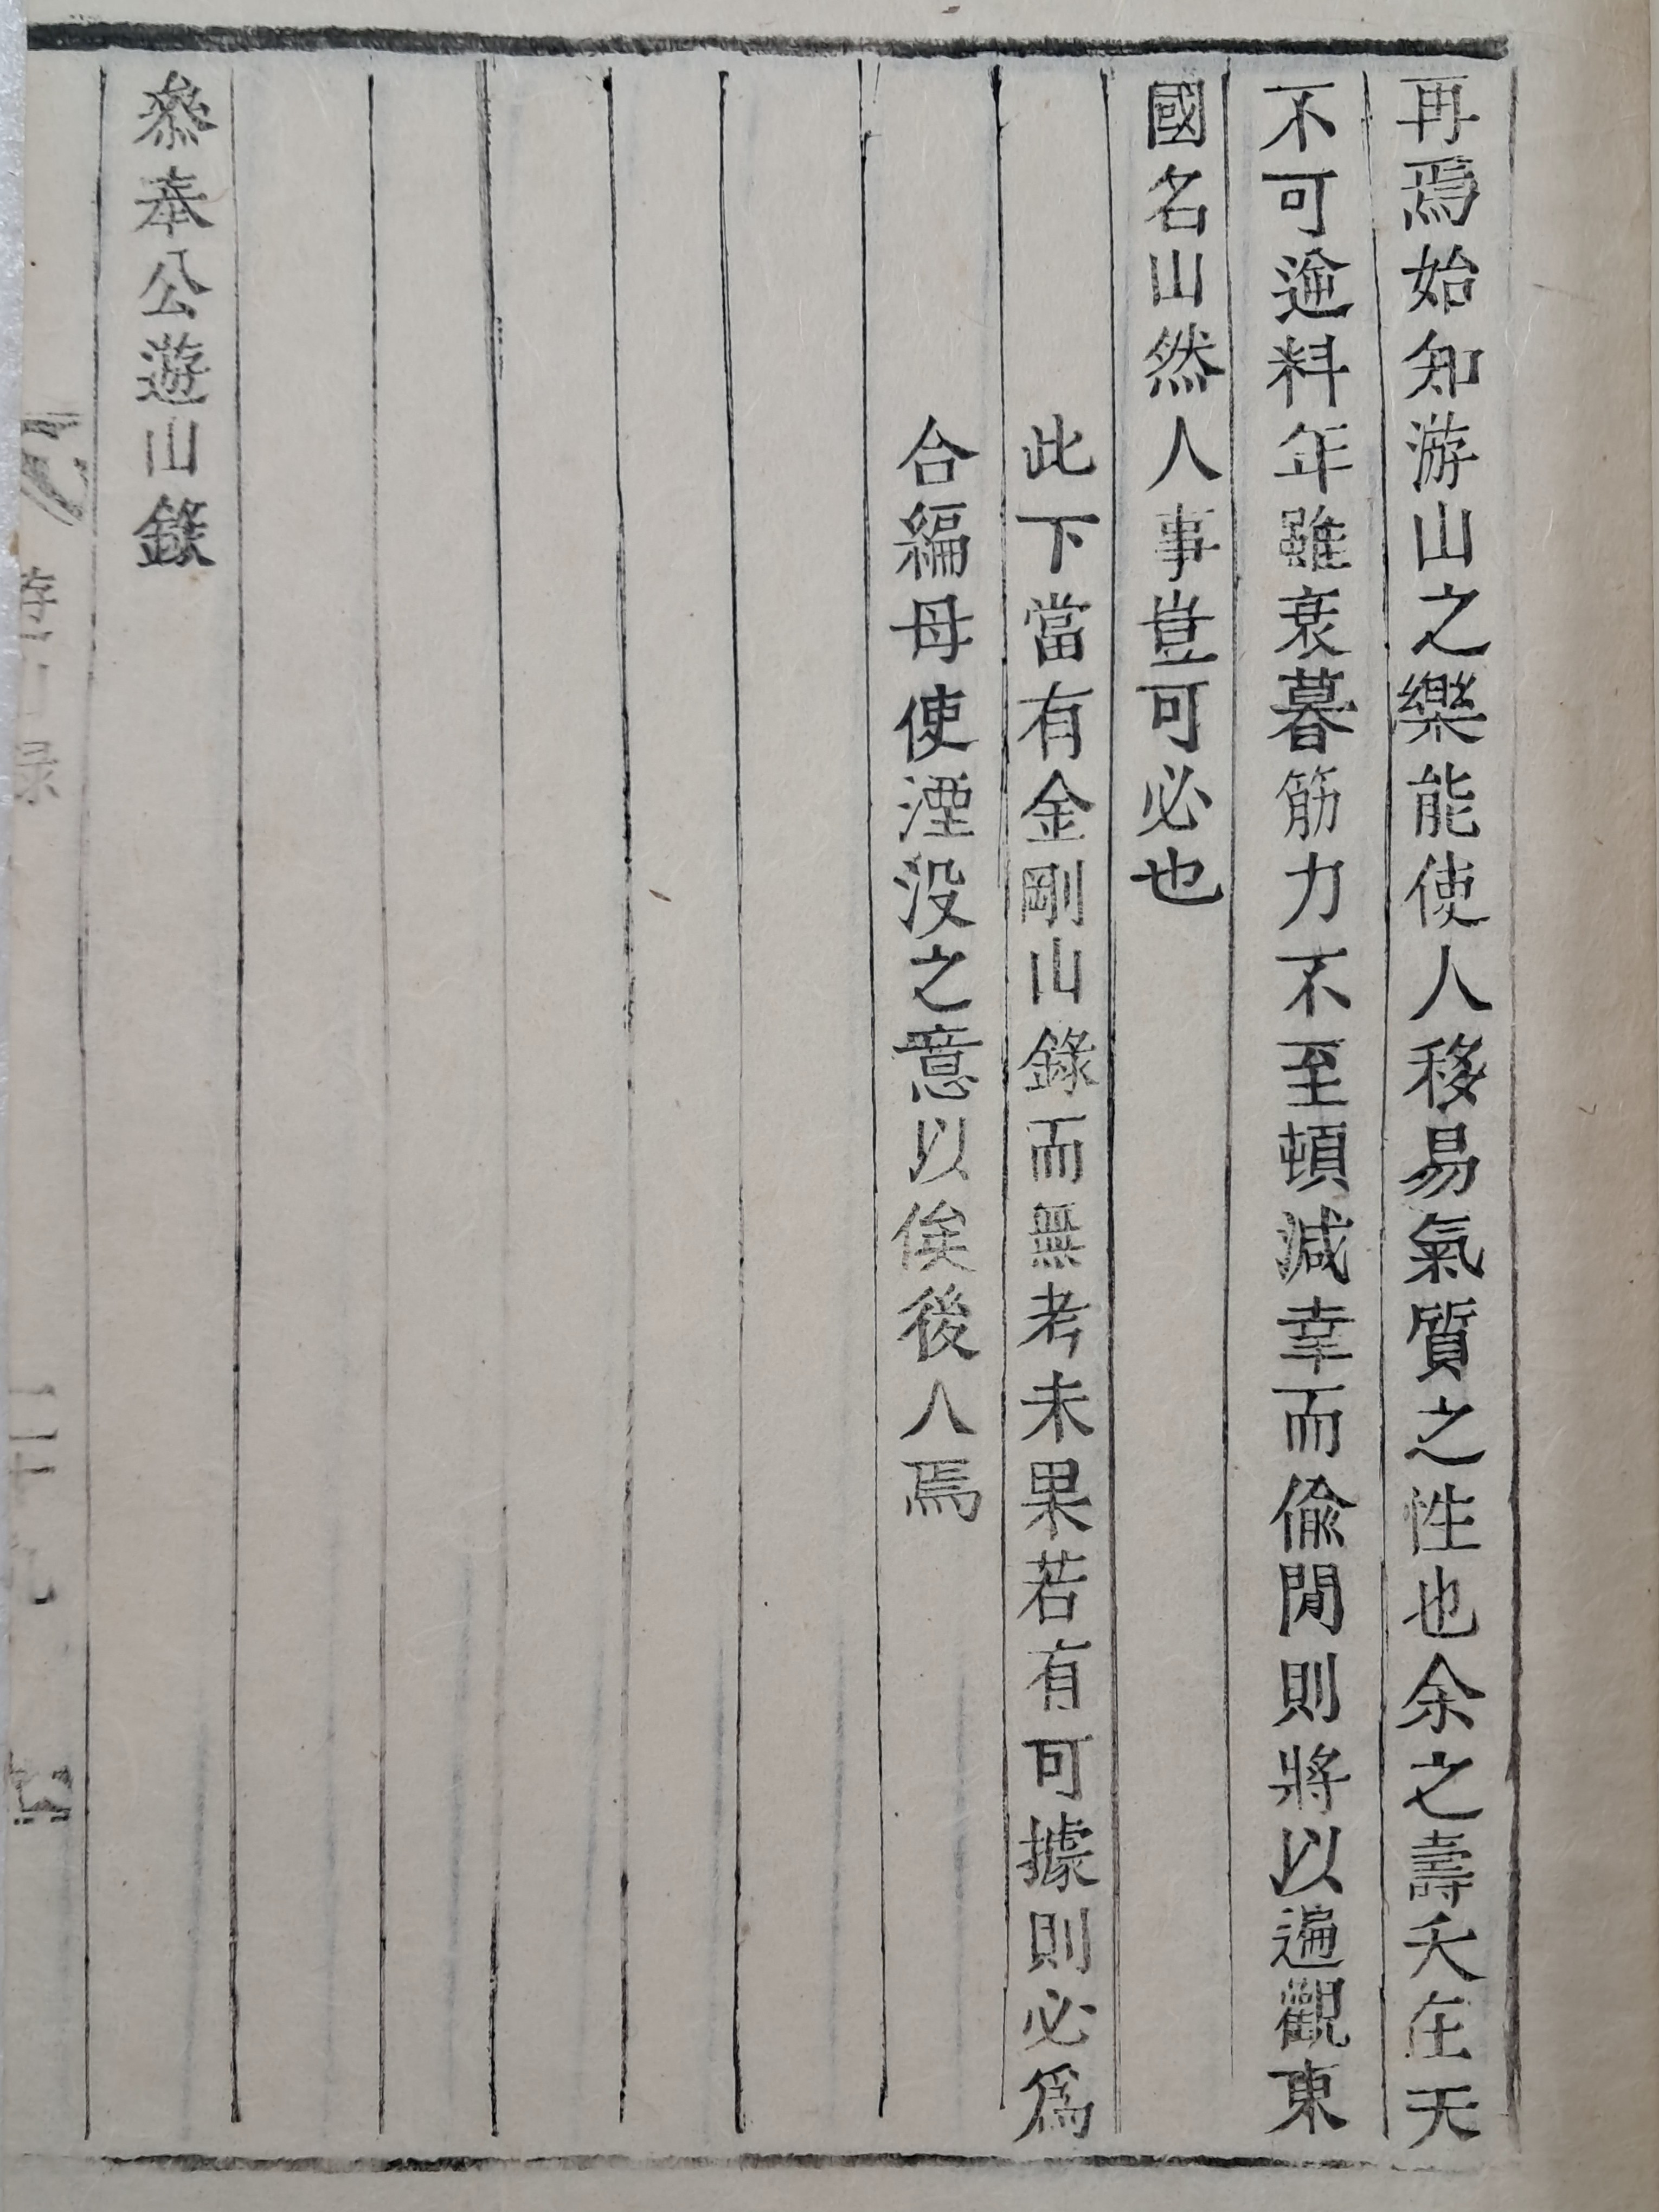 再焉始知游山之樂能使人移易氣質之性也余之壽夭在天
不可逆料年雖衰暮筋力不至頓減幸而偸閒則將以遍觀東
國名山然人事豈可必也
此下當有金剛山錄而無考未果若有可據則必爲
合編毋使湮没之意以俟後人焉
叅奉公遊山錄
游山录
二十九